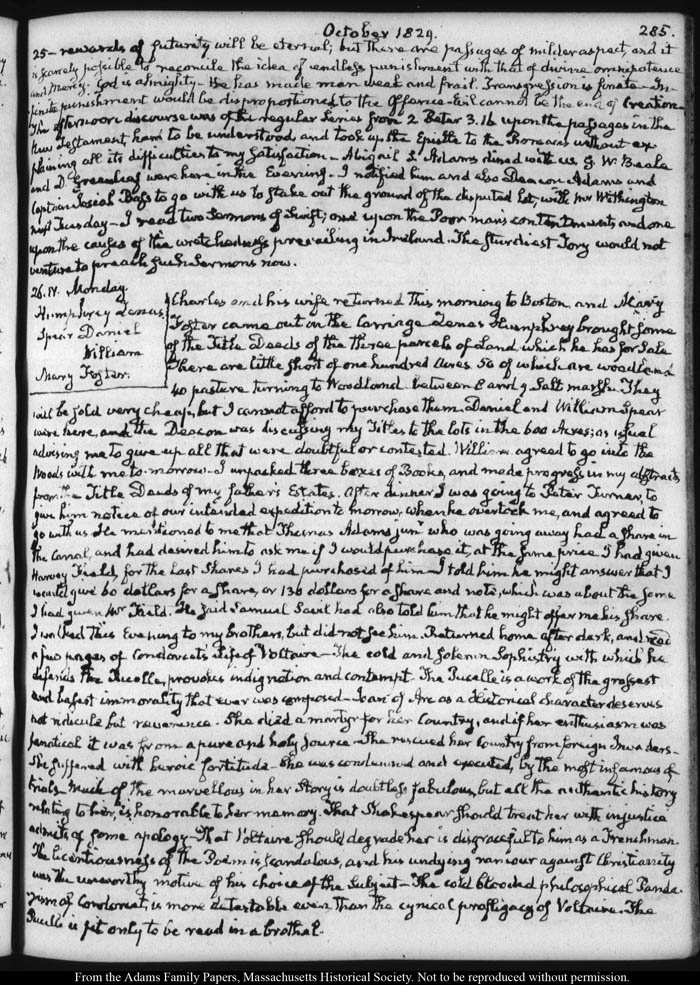 October 1829.
285.
25 - rewards of futurity will be eternal; but there are passages of milder aspect, and it
is scarcely possible to reconcile the idea of endless punishment with that of divine omnipotence
and Mercy. God is almighty - He has made man weak and frail. Transgression is finite - In-
finite punishment would be disproportioned to the offence - Evil cannot be the end of Creation
The afternoon discourse was of the regular Series from 2 Peter 3. 16 upon the passages in the
New Testament hard to be understood, and took up the Epistle to the Romans without ex-
plaining all its difficulties to my satisfaction - Abigail S. Adams dined with us, G. W. Beale
and D. Greenleaf were here in the Evening. I notified him and also Deacon Adams and
Captain Joseph Bass to go with us to stake out the ground of the disputed lot, with Mr Withington
next Tuesday - I read two Sermons of Swift; one upon the Poor man's contentments and one
upon the causes of the wretchedness prevailing in Ireland. The sturdiest Tory would not
venture to preach such Sermons now.
26. IV. Monday.
Humphrey Lenas
Spear Daniel
William
Mary Foster.
Charles and his wife returned this morning to Boston and Mary
Foster came out in the carriage Lenas Humphrey brought some
of the Title Deeds of the three parcels of Land which he has for Sale
There are little short of one hundred Acres 50 of which are woodland
40 pasture turning to Woodland between 8 and 9 Salt marsh. They
will be sold very cheap, but I cannot afford to purchase them. Daniel and William Spear
were here, and the Deacon was discussing my Titles to the lots in the 600 Acres; as usual
advising me to give up all that were doubtful or contested. William agreed to go into the
Woods with me to-morrow. I unpacked three boxes of Books, and made progress in my abstracts
from the Title Deeds of my father's Estates. After dinner I was going to Peter Turner, to
give him notice of our intended expedition to morrow, when he overtook me, and agreed to
go with us He mentioned to me that Thomas Adams junr who was going away had a share in
the Canal, and had desired him to ask me if I would purchase it, at the same price I had given
Harvey Field, for the last Shares I had purchased of him - I told him he might answer that I
would give 60 dollars for a share, or 130 dollars for a share and note, which was about the same
I had given Mr Field. He said Samuel Savil had also told him that he might offer me his share.
I walked this Evening to my brother's, but did not see him. Returned home after dark, and read
a few pages of Condorcet's Life of Voltaire - The cold and solemn Sophistry with which he
defends the Pucelle, provokes indignation and contempt - The Pucelle is a work of the grossest
and basest immorality that ever was composed - Joan of Arc as a Historical character deserves
not ridicule but reverence. She died a martyr for her Country, and if her enthusiasm was
fanatical it was from a pure and holy source - She rescued her Country from foreign Invaders -
She suffered with heroic fortitude - She was condemned and executed, by the most infamous of
trials. Much of the marvellous in her Story is doubtless fabulous, but all the authentic history
relating to her, is honorable to her memory. That Shakespear should treat her with injustice
admits of some apology - That Voltaire should degrade her is disgraceful to him as a Frenchman.
The licentiousness of the Poem is scandalous, and his undying rancour against Christianity
was the unworthy motive of his choice of the Subject - The cold blooded philosophical Panda-
rism of Condorcet, is more detestable even than the cynical profligacy of Voltaire. The
Pucelle is fit only to be read in a brothel.
From the Adams Family Papers, Massachusetts Historical Society. Not to be reproduced without permission.